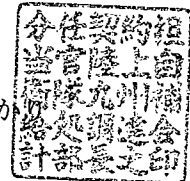 分任契約担
当官陸上自
衛隊九州補
給処調達会
計部長之印